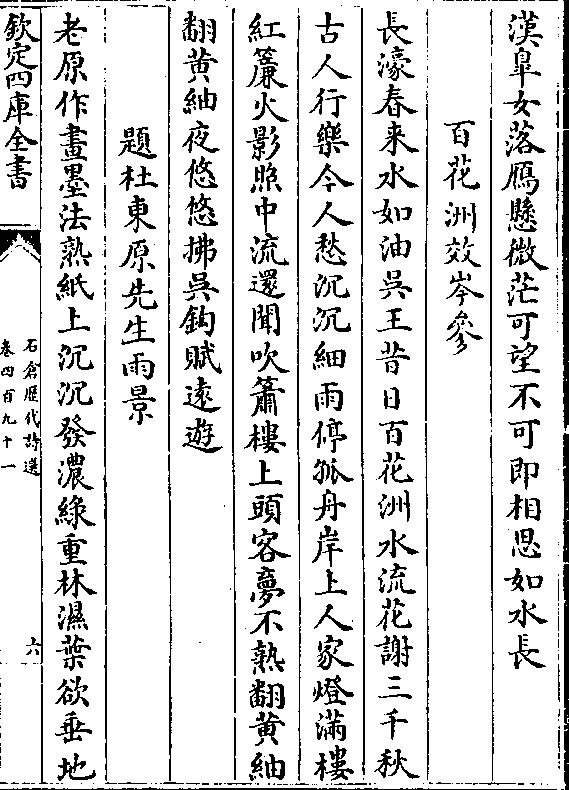 漢皐女落鴈懸微茫可望不可即相思如水長
百花洲效岑參
長濠春来水如油吳王昔日百花洲水流花謝三千秋
古人行樂今人愁沉沉細雨停孤舟岸上人家燈滿樓
紅簾火影照中流還聞吹簫樓上頭客夢不熟翻黄紬
翻黄紬夜悠悠拂吳鈎賦遠遊
題杜東原先生雨景
老原作畫墨法熟紙上沉沉發濃綠重林濕葉欲垂地
欽定四庫全書
石倉歷代詩選
卷四百九十一
六